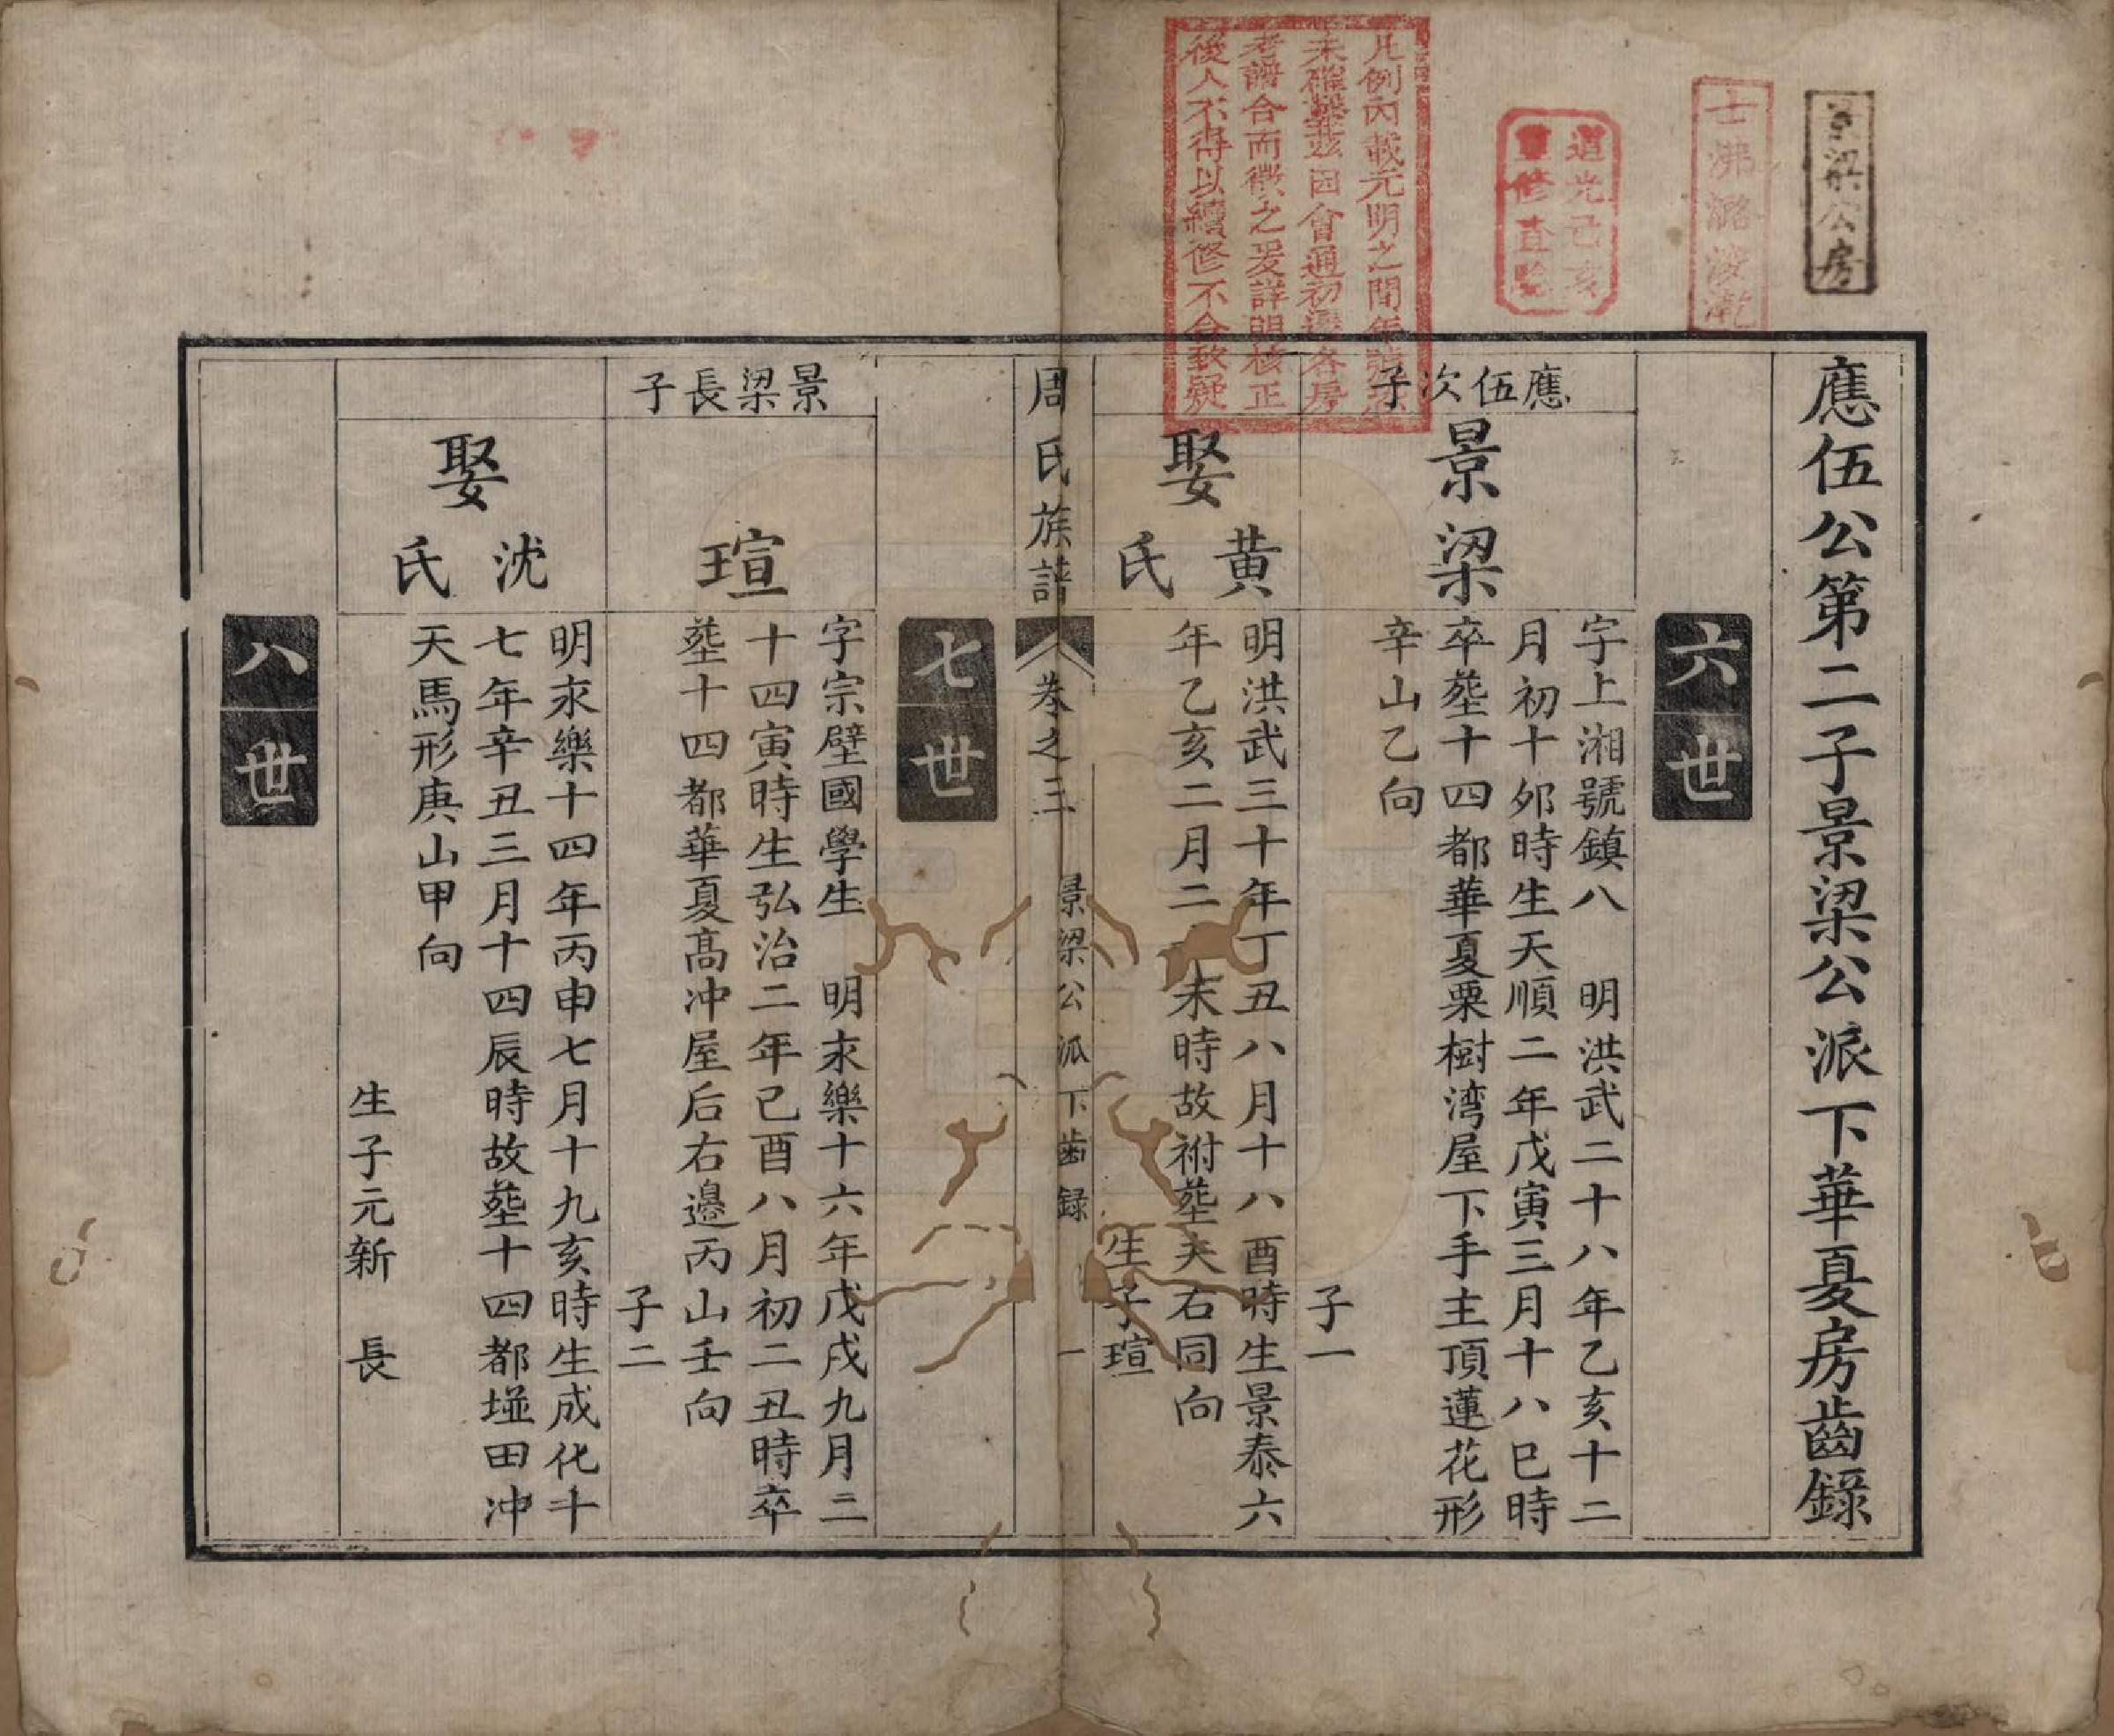 景梁公房
道光己亥
重修查驗
凡例內載元明之間年號
未確茲因會通初遷各房
考譜合而徵之爰詳明核正
後人不得以續修不合致疑
應伍公第二子景梁公派下華夏房齒錄
六世
應伍次子
景梁
字上湘號鎮八 明洪武二十八年乙亥十二
月初十夘時生天順二年戊寅三月十八巳時
卒塟十四都華夏栗樹湾屋下手主頂蓮花形
辛山乙向
子一
娶黄氏
明洪武三十年丁丑八月十八酉時生景泰六
年乙亥二月二 未時故祔塟夫右同向
生子瑄
周氏族譜 卷之三 景梁公派下齒録 一
七世
景梁長子
瑄
字宗壁國學生 明永樂十六年戊戌九月二
十四寅時生弘治二年己酉八月初二丑時卒
塟十四都華夏髙冲屋后右邉丙山壬向
子二
娶沈氏
明永樂十四年丙申七月十九亥時生成化十
七年辛丑三月十四辰時故塟十四都塸田冲
天馬形庚山甲向
生子元新 長
八世